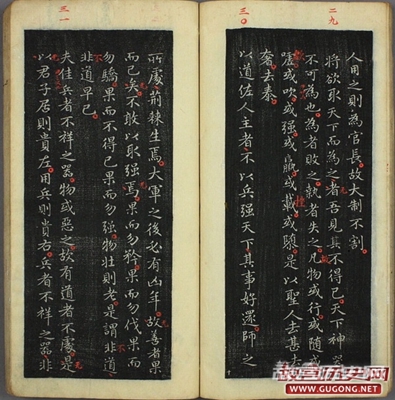 二九
人用之則為官長故大制不割
將欲取天下而為之者吾見其不得已天下神器
不可為也為者敗之執者失之凡物或行或隨或
或吹或强或羸或載或隳是以聖人去甚去
奢去泰
三〇
以道佐人主者不以兵强天下其事好還師之
所處荊棘生焉大軍之後必有凶年故善者果
而已矣不敢以取强焉果而勿矜果而勿伐果而
勿驕果而不得已果而勿强物壯則老是謂非道
非道早已
三一
夫佳兵者不祥之器物或惡之故有道者不處是
以君子居則貴左用兵則貴右兵者不祥之器非
WWW.GUGONG.NET